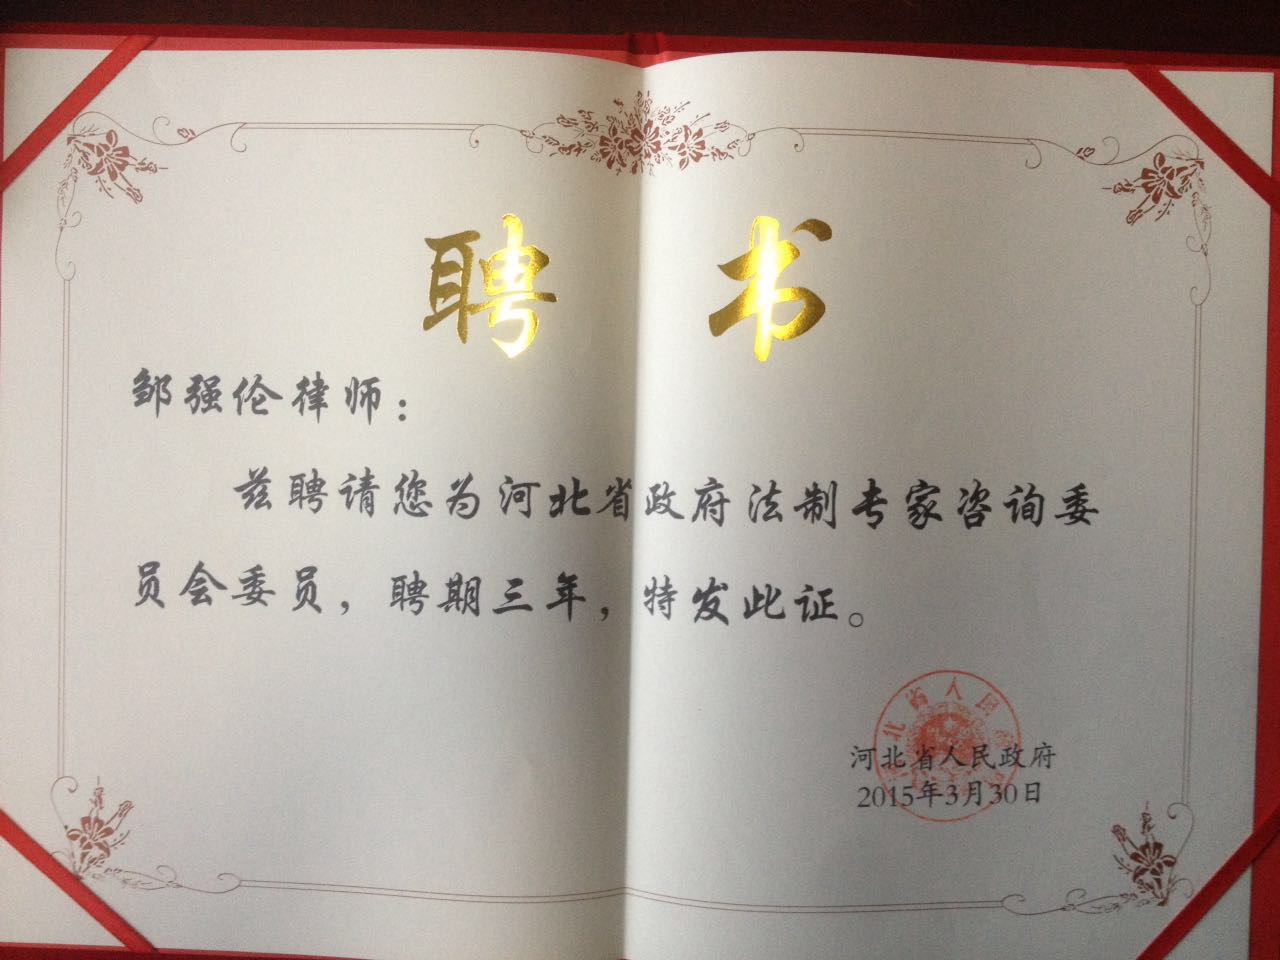 聘书
邹强伦律师：
兹聘请您为河北省政府法制专家咨询委
员会委员，聘期三年，特发此证。
河北省人民政府
2015年3月30日